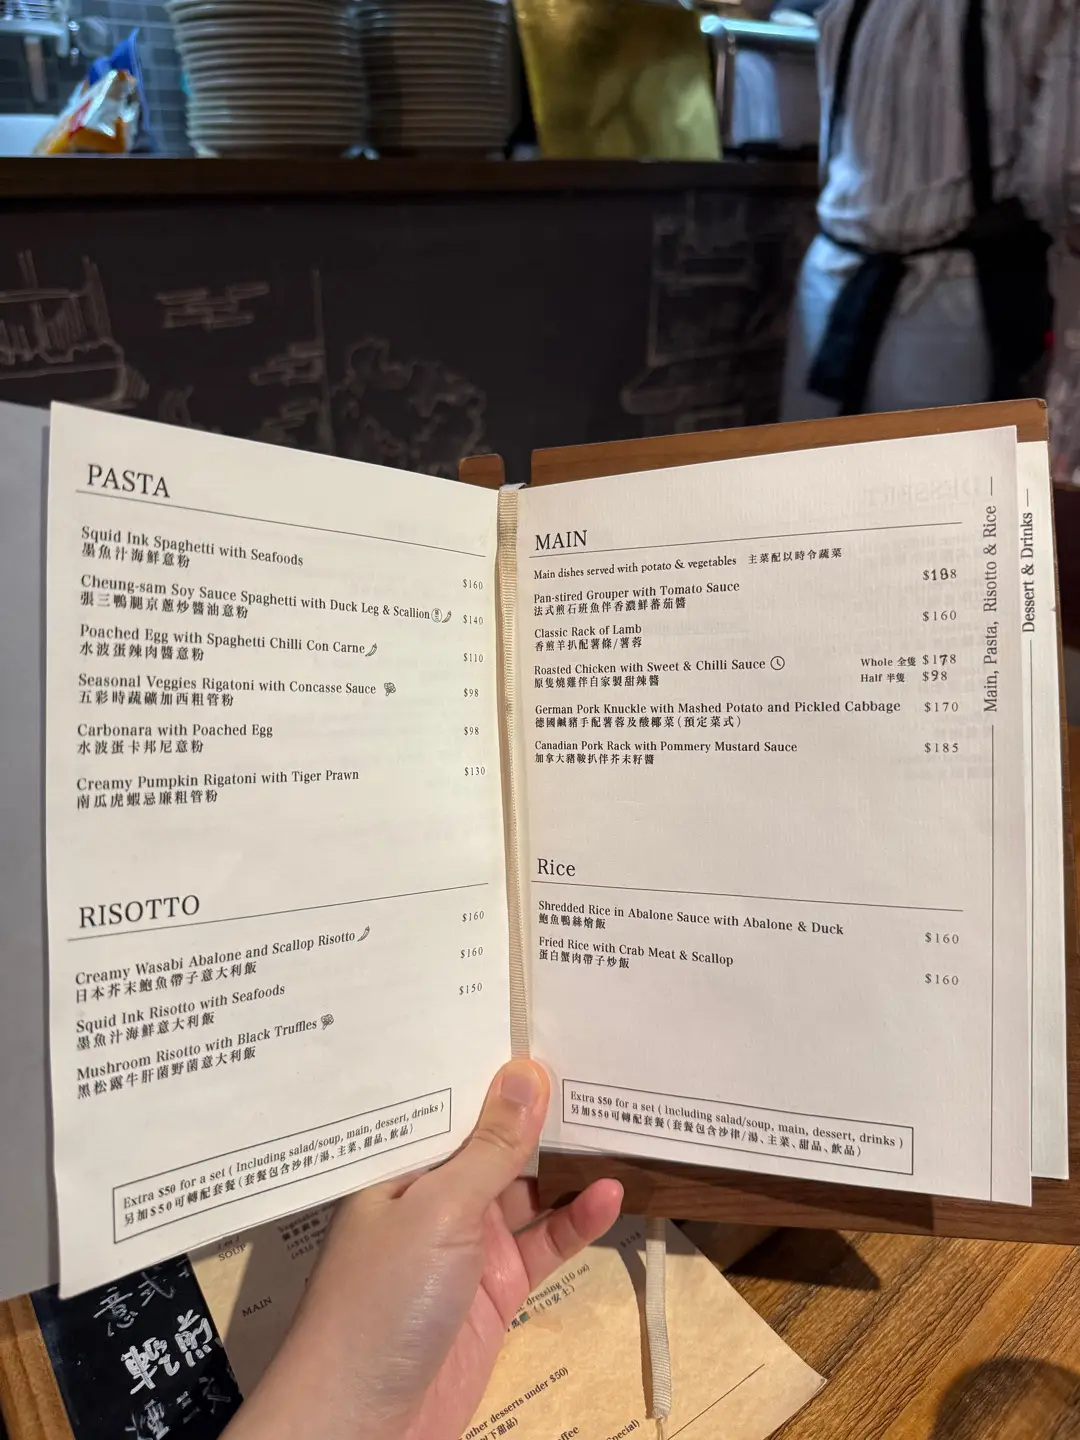 PASTA
Squid Ink Spaghetti with Seafoods
墨魚汁海鮮意粉
$160
Cheung-sam Soy Sauce Spaghetti with Duck Leg & Scallion
張三鴨腿京蔥炒醬油意粉
$140
Poached Egg with Spaghetti Chilli Con Carne
水波蛋辣肉醬意粉
$110
Seasonal Veggies Rigatoni with Concasse Sauce
五彩時蔬礦加西粗管粉
$98
Carbonara with Poached Egg
水波蛋卡邦尼意粉
$98
Creamy Pumpkin Rigatoni with Tiger Prawn
南瓜虎蝦忌廉粗管粉
$130
RISOTTO
$160
Creamy Wasabi Abalone and Scallop Risotto
日本芥末鮑魚帶子意大利飯
$160
Squid Ink Risotto with Seafoods
墨魚汁海鮮意大利飯
$150
Mushroom Risotto with Black Truffles
黑松露牛肝菌野菌意大利飯
Extra $50 for a set ( Including salad/soup, main, dessert, drinks )
另加$50可轉配套餐(套餐包含沙律/湯、主菜、甜品、飲品)
MAIN
Main dishes served with potato & vegetables 主菜配以時令蔬菜
Pan-stired Grouper with Tomato Sauce
法式煎石班魚伴香濃鮮蕃茄醬
$188
Classic Rack of Lamb
香煎羊扒配薯條/薯蓉
$160
Roasted Chicken with Sweet & Chilli Sauce
原隻燒雞伴自家製甜辣醬
Whole 全隻 $178
Half 半隻 $98
German Pork Knuckle with Mashed Potato and Pickled Cabbage
德國鹹豬手配薯蓉及酸椰菜(預定菜式)
$170
Canadian Pork Rack with Pommery Mustard Sauce
加拿大豬鞍扒伴芥末籽醬
$185
Rice
Shredded Rice in Abalone Sauce with Abalone & Duck
鮑魚鴨絲燴飯
$160
Fried Rice with Crab Meat & Scallop
蛋白蟹肉帶子炒飯
$160
Extra $50 for a set ( Including salad/soup, main, dessert, drinks )
另加$50可轉配套餐(套餐包含沙律/湯、主菜、甜品、飲品)
Main, Pasta, Risotto & Rice
Dessert & Drinks
SOUP
MAIN
dressing (10 oz)
other desserts under $50)
意式